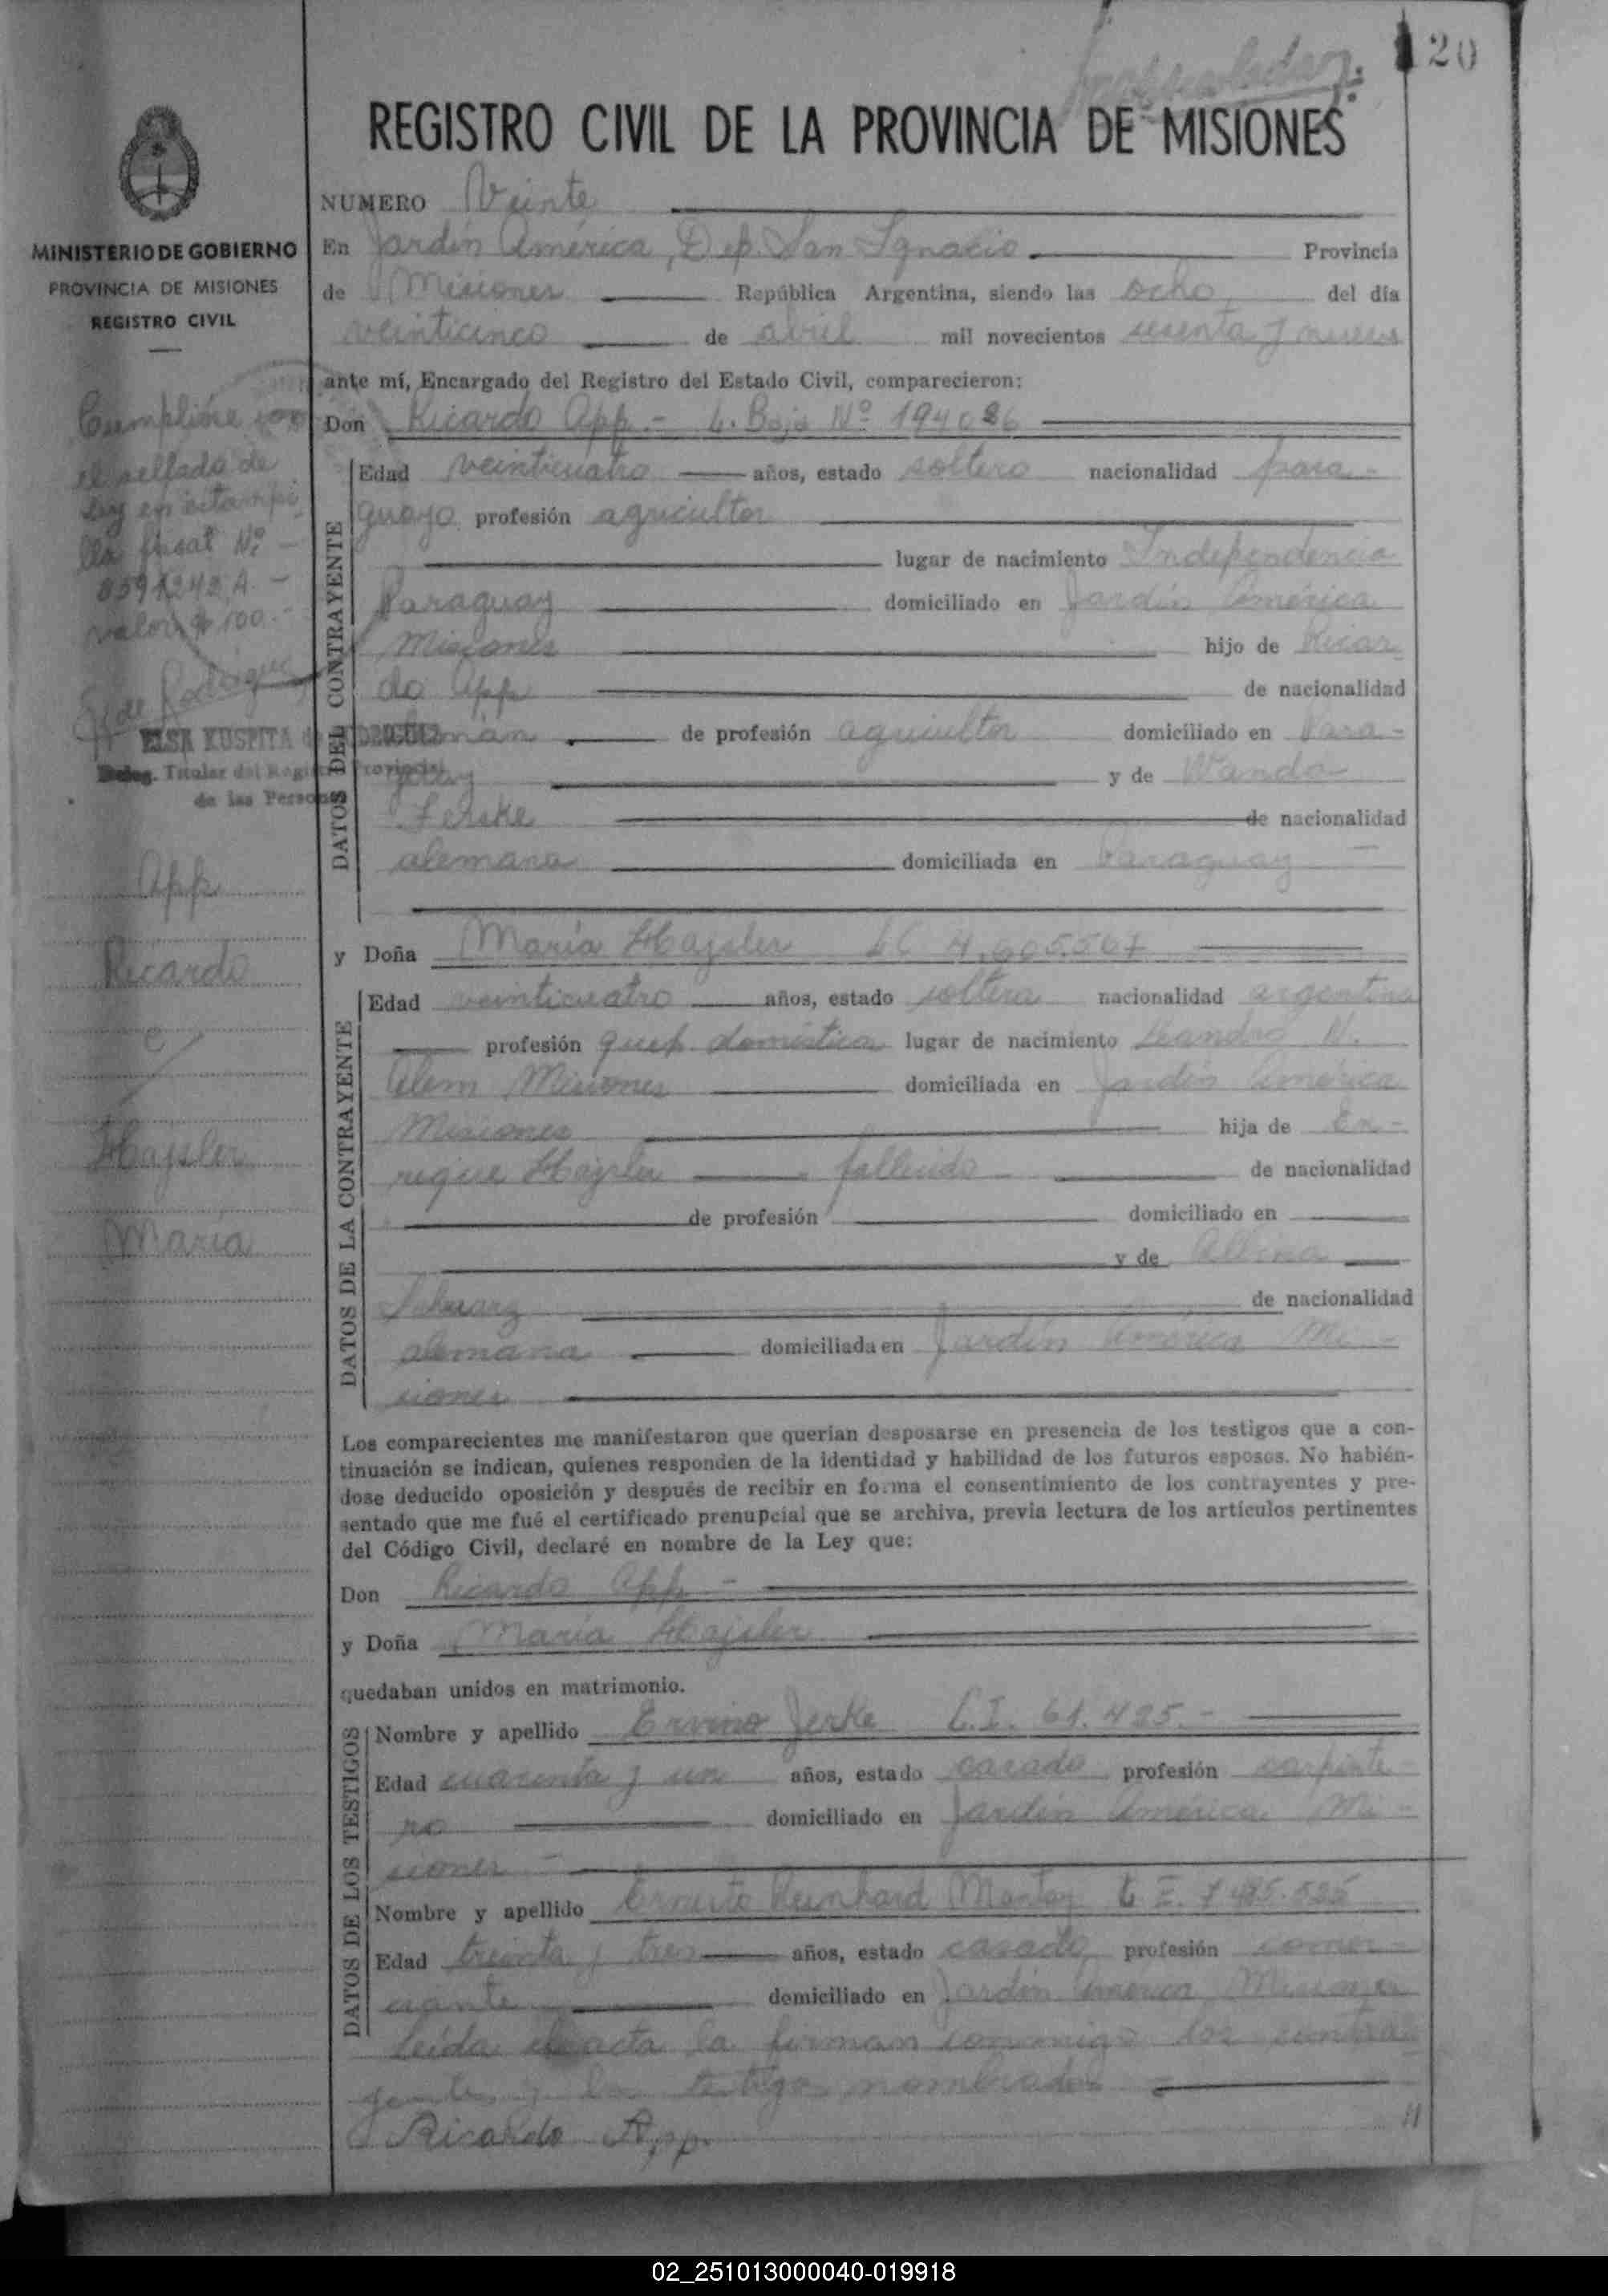 20
REGISTRO CIVIL DE LA PROVINCIA DE MISIONES
MINISTERIO DE GOBIERNO
PROVINCIA DE MISIONES
REGISTRO CIVIL
Cumplióse con
el sellado de
ley en estampi
lla fiscal Nº -
valor $ 100.-
E. de Rodriguez
ELSA KUSPITA de
Deleg. Titular del Registro Provincial
de las Personas
App
Ricardo
e
Hajsler
María
NUMERO Veinte
En Jardín América, Dep. San Ignacio Provincia
de Misiones República Argentina, siendo las ocho del día
veinticinco de abril mil novecientos sesenta y nueve
ante mí, Encargado del Registro del Estado Civil, comparecieron:
Don Ricardo App.- Nº 194086
DATOS DEL CONTRAYENTE
Edad veinticuatro años, estado soltero nacionalidad para-
guayo profesión agricultor
lugar de nacimiento Independencia
Paraguay domiciliado en Jardín América
Misiones hijo de Ricar
do App de nacionalidad
alemán de profesión agricultor domiciliado en Para-
guay y de Wanda
de nacionalidad
alemana domiciliada en Paraguay
y Doña María Hajsler LC 4.605.567
DATOS DE LA CONTRAYENTE
Edad veinticuatro años, estado soltera nacionalidad argentina
profesión queh. doméstica lugar de nacimiento Leandro N.
Alem Misiones domiciliada en Jardín América
Misiones hija de En-
rique Hajsler fallecido de nacionalidad
de profesión domiciliado en
y de Albina
Schwarz de nacionalidad
alemana domiciliada en Jardín América Mi-
siones
Los comparecientes me manifestaron que querían desposarse en presencia de los testigos que a con-
tinuación se indican, quienes responden de la identidad y habilidad de los futuros esposos. No habién-
dose deducido oposición y después de recibir en forma el consentimiento de los contrayentes y pre-
sentado que me fué el certificado prenupcial que se archiva, previa lectura de los artículos pertinentes
del Código Civil, declaré en nombre de la Ley que:
Don Ricardo App -
y Doña María Hajsler
quedaban unidos en matrimonio.
DATOS DE LOS TESTIGOS
Nombre y apellido Ervino Jerke C.I. 61.485.-
Edad cuarenta y un años, estado casado profesión carpinte-
ro domiciliado en Jardín América Mi-
siones -
Nombre y apellido Ernesto Reinhard
Edad treinta y tres años, estado casado profesión comer-
ciante domiciliado en Jardín América Misiones
Leída el acta la firman conmigo los contra-
yentes y los testigos nombrados
Ricardo App.
02_251013000040-019918